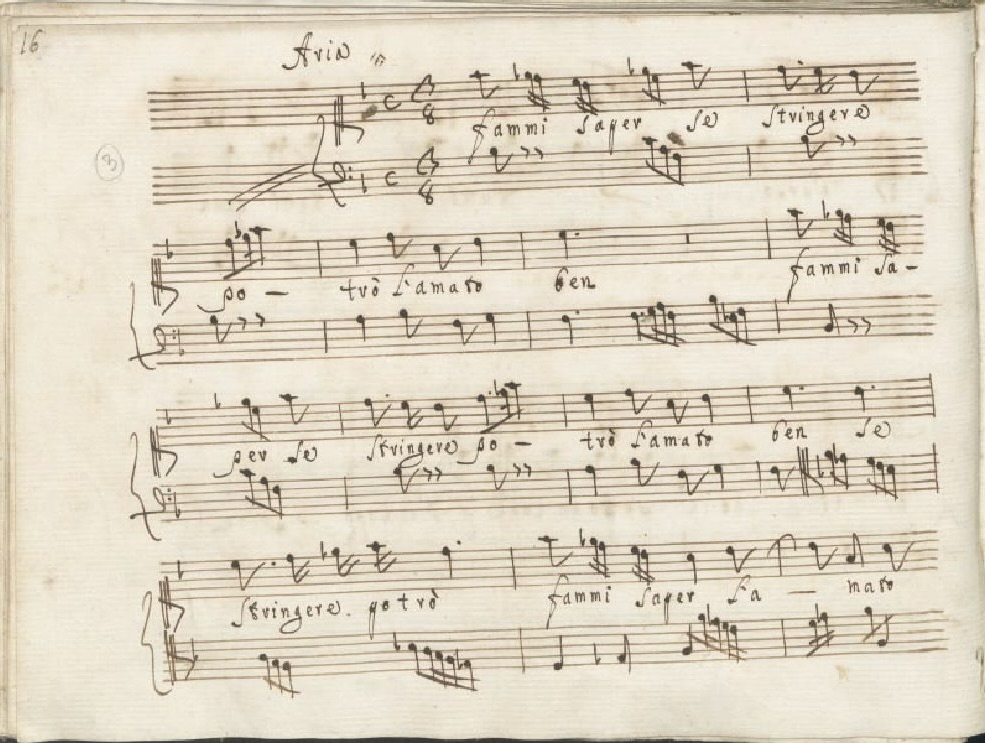 16
Aria
C 6 8
fammi saper se stringere
3
C 6 8
po - trò l'amato ben fammi sa-
per se stringere po - trò l'amato ben se
stringere. potrò fammi saper l'a - mato